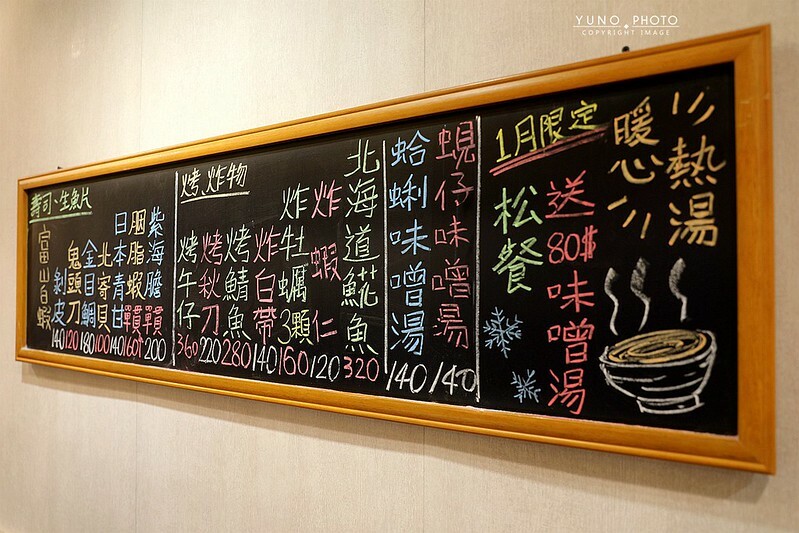 YUNO PHOTO
COPYRIGHT IMAGE
壽司、生魚片
富山白蝦
剝皮140
鬼頭刀120
金目鯛180
北寄貝100
日本青甘140
胭脂蝦單貫160
紫海膽單貫200
烤、炸物
烤午仔360
烤秋刀220
烤鯖魚280
炸白帶140
炸牡蠣3顆160
炸蝦仁120
北海道魚320
蛤蜊味噌湯140
蜆仔味噌湯140
1月限定
松餐
送80$味噌湯
暖心
熱湯